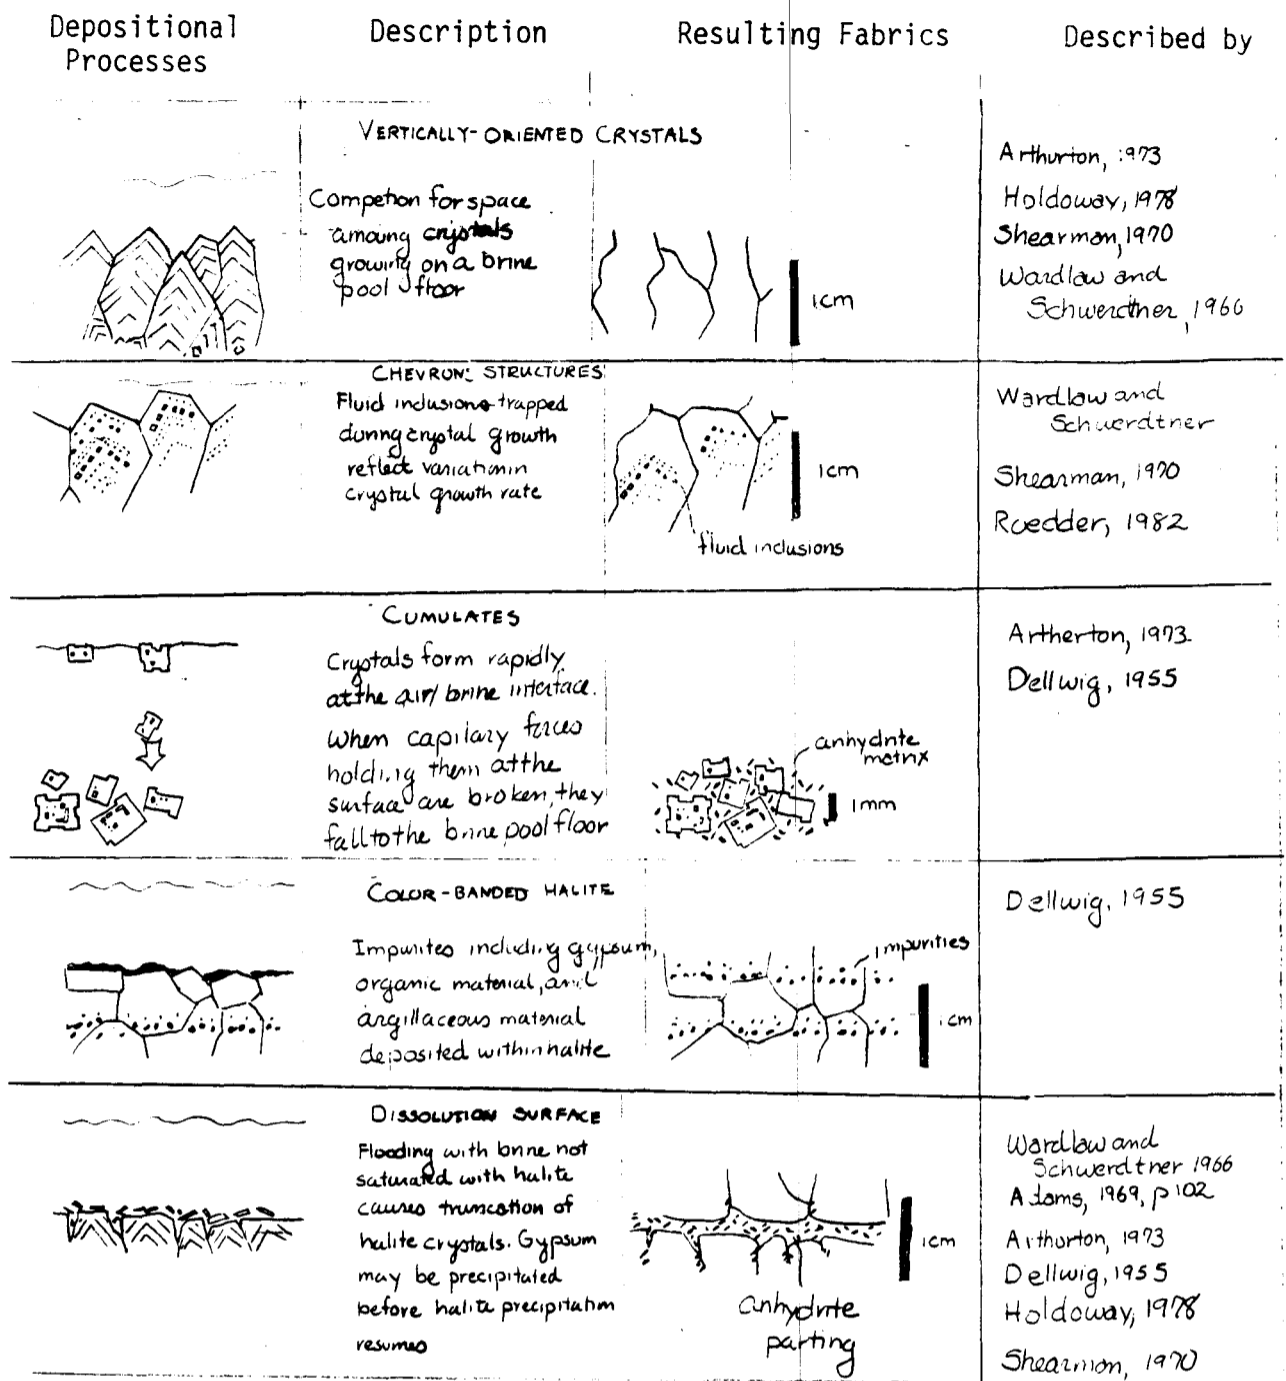 Depositional Processes
Description
Resulting Fabrics
Described by
VERTICALLY-ORIENTED CRYSTALS
Competion for space
among crystals
growing on a brine
pool floor
1cm
Arthurton, 1973
Holdoway, 1978
Shearman, 1970
Wardlaw and
Schwerdtner, 1966
CHEVRON STRUCTURES
Fluid inclusions trapped
during crystal growth
reflect variation in
crystal growth rate
1cm
fluid inclusions
Wardlaw and
Schwerdtner
Shearman, 1970
Roedder, 1982
CUMULATES
Crystals form rapidly
at the air/brine interface.
When capilary forces
holding them at the
surface are broken, they
fall to the brine pool floor
anhydrite
matrix
1mm
Artherton, 1973
Dellwig, 1955
COLOR-BANDED HALITE
Impurites including gypsum,
organic material, and
argillaceous material
deposited within halite
impurities
1cm
Dellwig, 1955
DISSOLUTION SURFACE
Flooding with brine not
saturated with halite
causes truncation of
halite crystals. Gypsum
may be precipitated
before halite precipitation
resumes
1cm
anhydrite
parting
Wardlaw and
Schwerdtner 1966
Adams, 1969, p102
Arthurton, 1973
Dellwig, 1955
Holdoway, 1978
Shearman, 1970